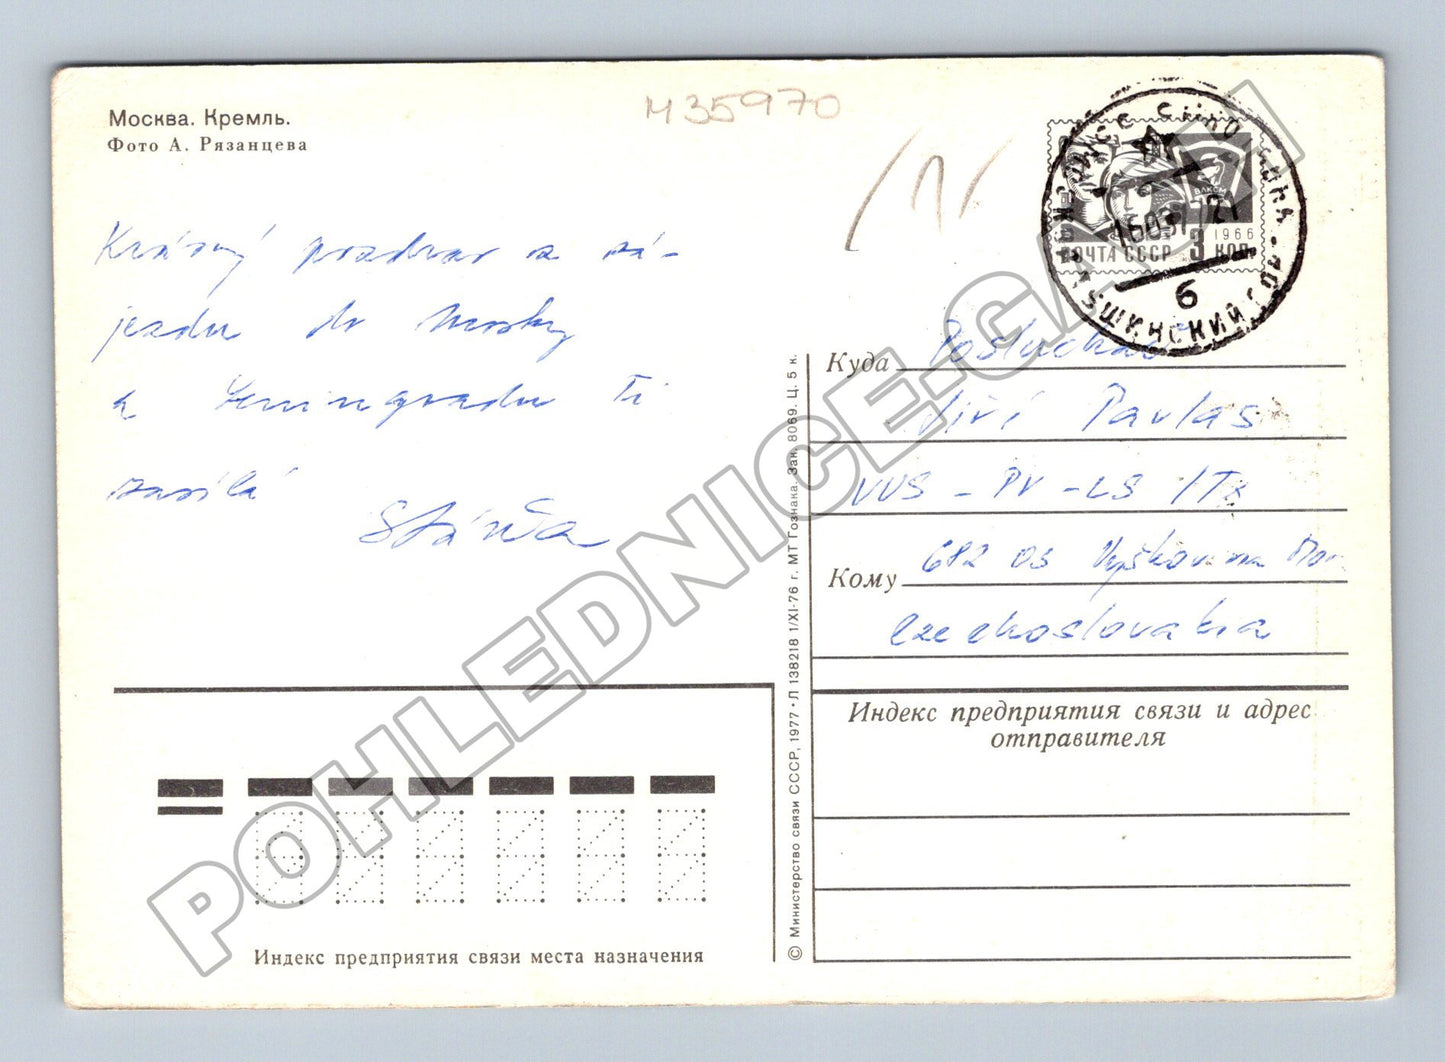 Москва. Кремль.
Фото А. Рязанцева
M35970
Krásný pozdrav ze zá-
jezdu do Moskvy
a Leningradu Ti
zasílá
Stáňa
ВЛКСМ
1966
ПОЧТА СССР 3 КОП
6
Куда Posluchač
Jiří Pavlas
VVS - PV - LS
682 03 Vyškov na Mor.
Кому
Czechoslovakia
Индекс предприятия связи и адрес
отправителя
Индекс предприятия связи места назначения
© Министерство связи СССР, 1977 • Л 138218 1/XI-76 г. МТ Гознака. Зак. 8069. Ц. 5 к.
POHLEDNICE-GARAH